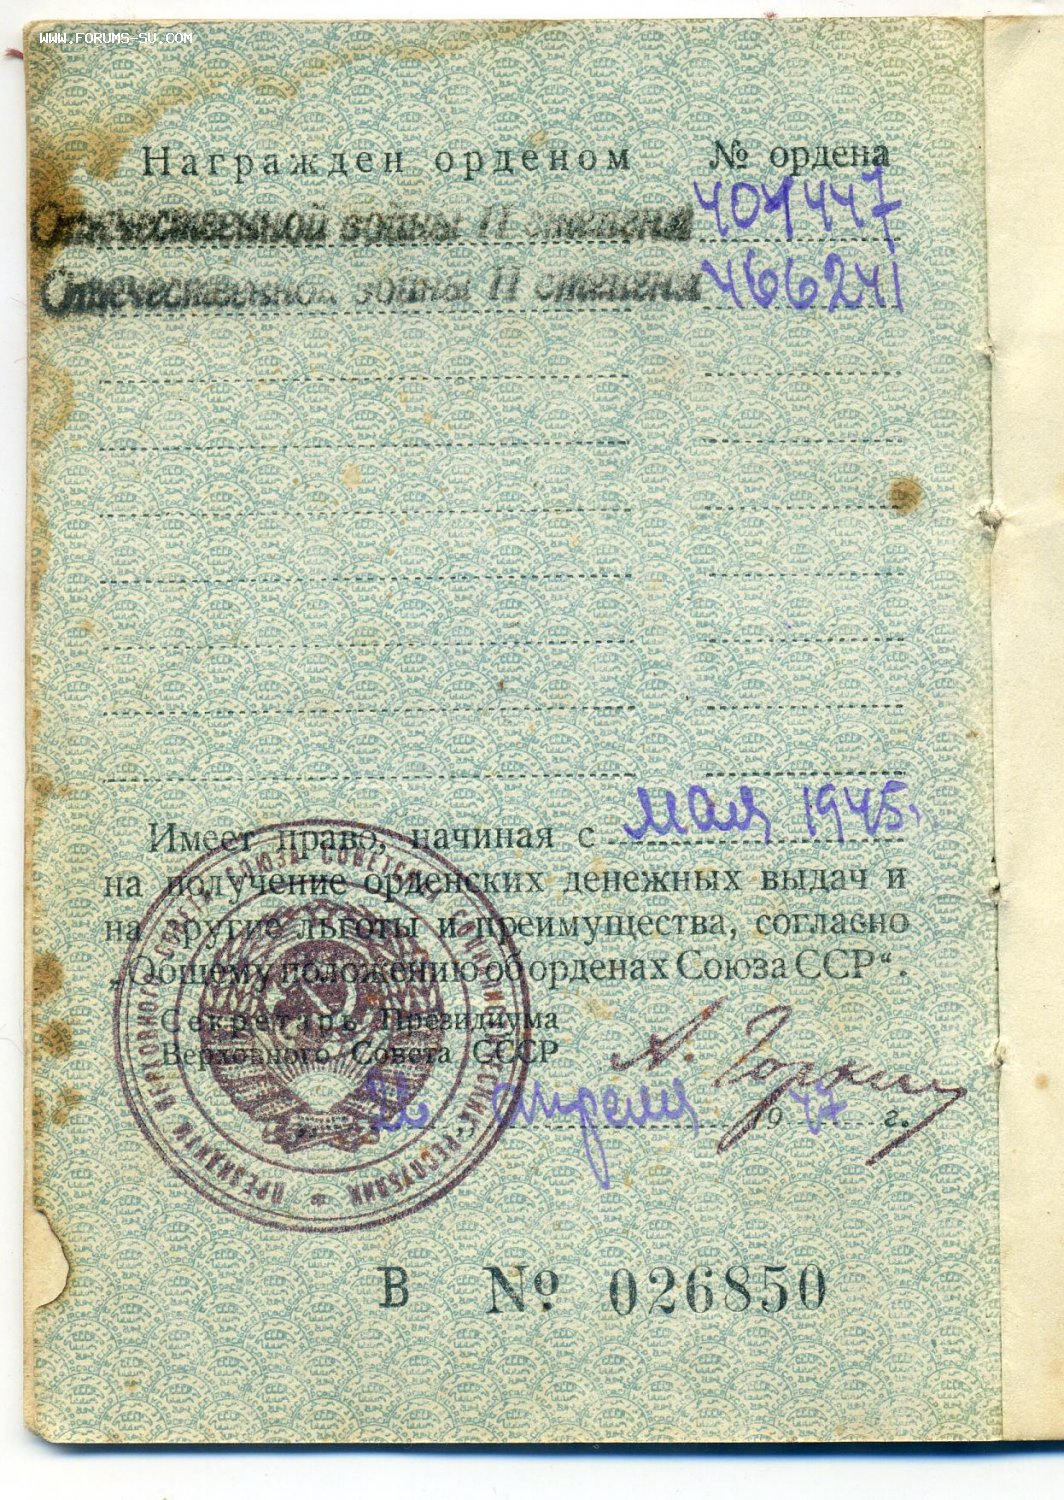 WWW.FORUMS-SU.COM
Награжден орденом № ордена
Отечественной войны II степени 401447
Отечественной войны II степени 466241
Имеет право, начиная с мая 1945.
на получение орденских денежных выдач и
на другие льготы и преимущества, согласно
„Общему положению об орденах Союза ССР“.
Секретарь Президиума
Верховного Совета СССР А. Горкин
26 апреля 1947 г.
ПРЕЗИДИУМ ВЕРХОВНОГО СОВЕТА СОЮЗА СОВЕТСКИХ СОЦИАЛИСТИЧЕСКИХ РЕСПУБЛИК
В № 026850